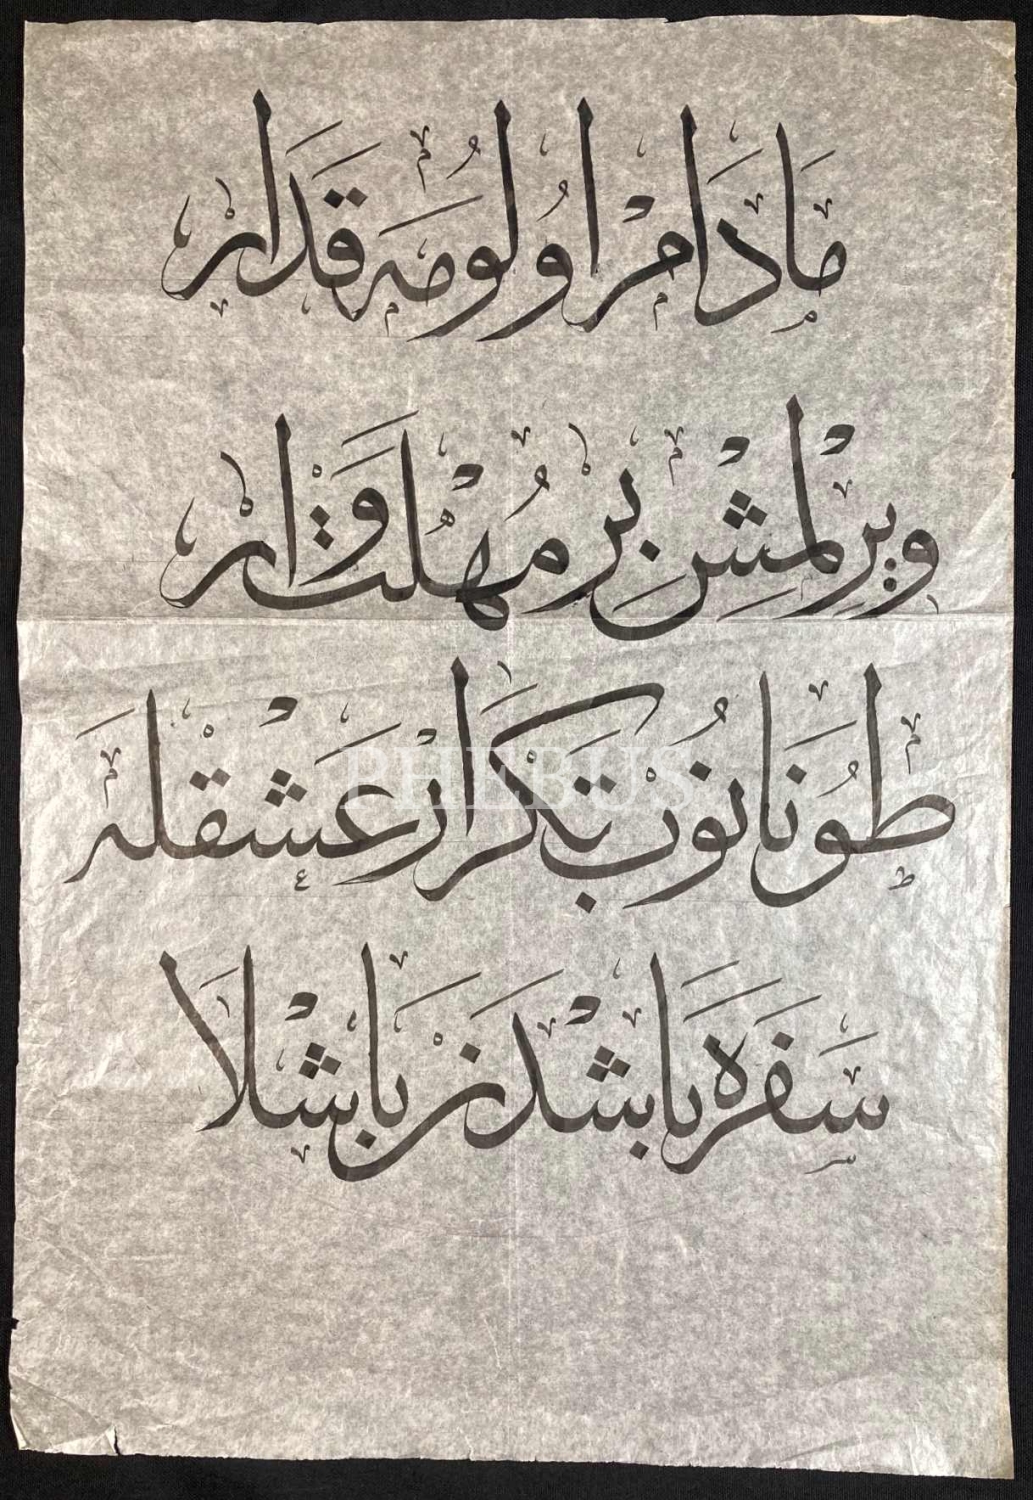 مَادَامْ اُولُومَه قَدَارْ
وِيرِلْمِشْ بِرْ مُهْلَتْ وَارْ
طُونَانُوبْ تَكْرَارْ عَشْقْلَه
سَفْرَه بَاشْدَنْ بَاشْلَا
PHEBUS